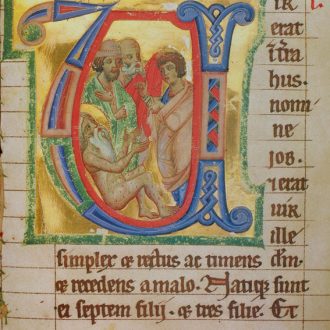 ir
erat
i t̄ra
hus.
nomi
ne
job.
⁊ erat
uir
ille
simplex ⁊ rectus ac timens dm̄.
⁊ recedens a malo. Natiq; sunt
ei septem filij. ⁊ tres filie. Et